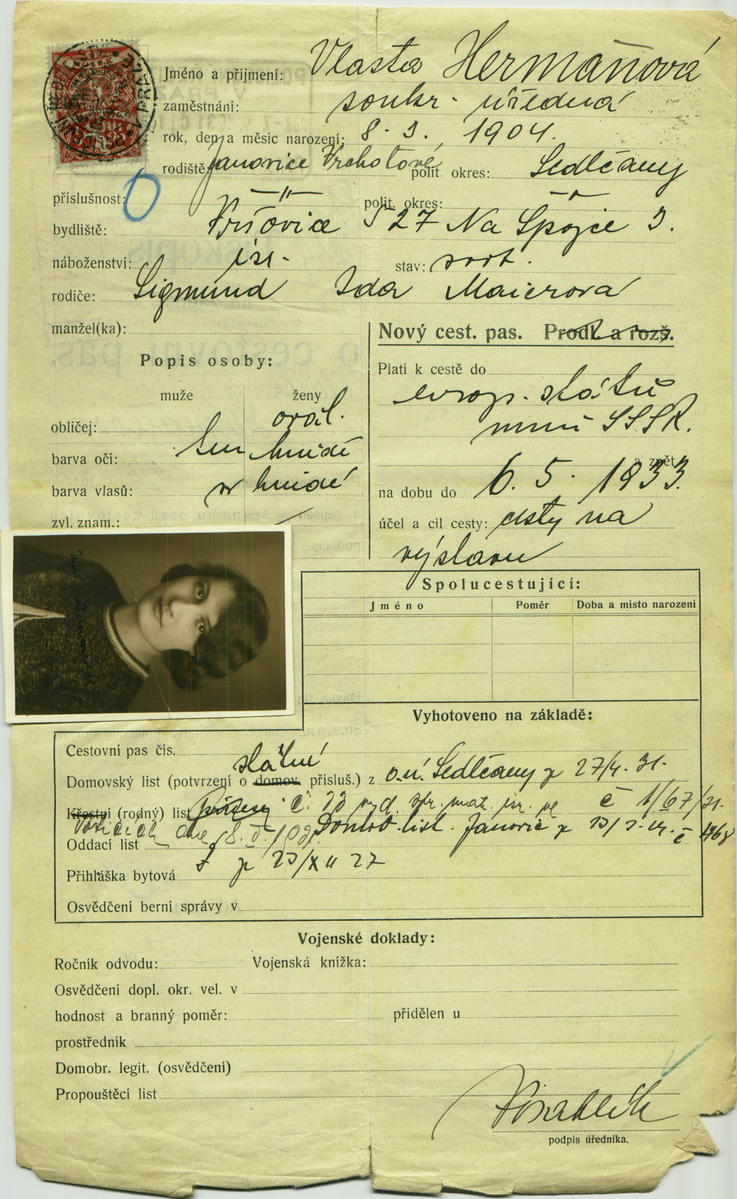 Jméno a příjmení: Vlasta Heřmanová
zaměstnání: soukr. úředná
rok, den a měsíc narození: 8. 3. 1904.
rodiště: Janovice Vrchotové polit. okres: Sedlčany
příslušnost: —"— polit. okres: —"—
bydliště: Vršovice 527 Na Spojce 3.
náboženství: isr. stav: svob.
rodiče: Sigmund Ida Maierová
manžel(ka):
Nový cest. pas. Prodl. a rozš.
Popis osoby:
muže ženy
obličej: ovál.
barva očí: tm hnědé
barva vlasů: hnědé
zvl. znam.:
Platí k cestě do
evrop. států
mimo SSSR.
a zpět
na dobu do 6. 5. 1933.
účel a cíl cesty: cesty na
výstavu
Spolucestující:
Jméno Poměr Doba a místo narození
Vyhotoveno na základě:
Cestovní pas čís.
státní
Domovský list (potvrzení o domov. přísluš.) z o.ú. Sedlčany z 27/4. 31.
Křestní (rodný) list č. 23 vyd. č 1/67/31.
Voticích dne Domov. list. Janovic z č 1968
Oddací list
Přihláška bytová z 23/XII 27
Osvědčení berní správy v
Vojenské doklady:
Ročník odvodu: Vojenská knížka:
Osvědčení dopl. okr. vel. v
hodnost a branný poměr: přidělen u
prostředník
Domobr. legit. (osvědčení)
Propouštěcí list
podpis úředníka.